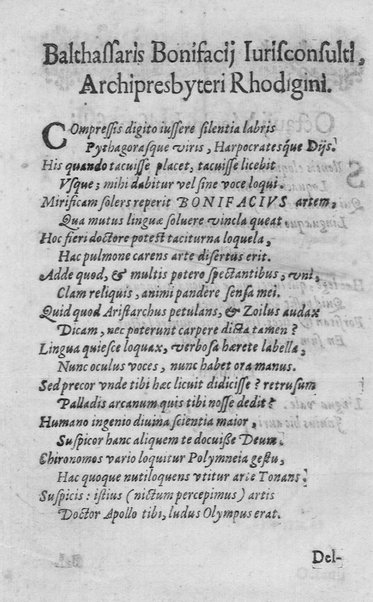 Balthassaris Bonifacij Iurisconsulti,
Archipresbyteri Rhodigini.
COmpressis digito iussere silentia labris
Pythagorasque viris, Harpocratesq́ue Dijs.
His quando tacuisse placet, tacuisse licebit
Vsque; mihi dabitur vel sine voce loqui.
Mirificam solers reperit BONIFACIVS artem,
Qua mutus linguæ soluere vincla queat.
Hoc fieri doctore potest taciturna loquela,
Hac pulmone carens arte disertus erit.
Adde quod, & multis potero spectantibus, vni,
Clam reliquis, animi pandere sensa mei.
Quid quod Aristarchus petulans, & Zoilus audax
Dicam, nec poterunt carpere dicta tamen?
Lingua quiesce loquax, verbosa hærete labella,
Nunc oculus voces, nunc habet ora manus.
Sed precor vnde tibi hæc licuit didicisse? retrusum
Palladis arcanum quis tibi nosse dedit?
Humano ingenio diuina scientia maior,
Suspicor hanc aliquem te docuisse Deum.
Chironomos vario loquitur Polymneia gestu,
Hac quoque nutiloquens vtitur arte Tonans.
Suspicis: istius (nictum percepimus) artis
Doctor Apollo tibi, ludus Olympus erat.
Del-